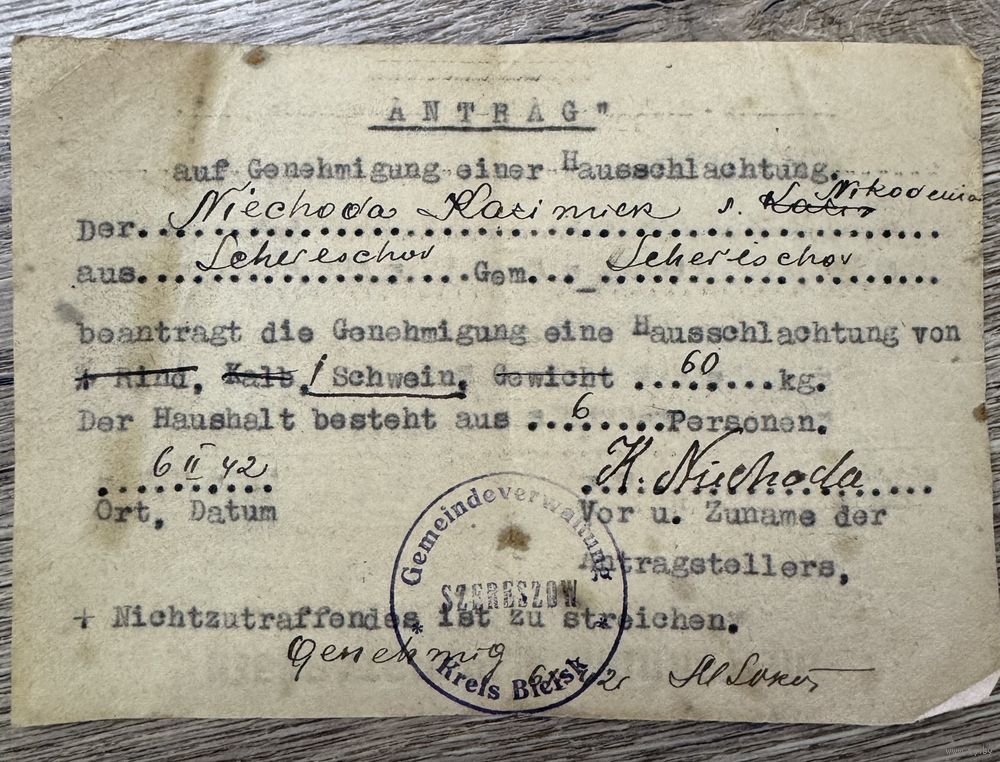 "ANTRAG"
auf Genehmigung einer Hausschlachtung.
Der...Niechoda Kazimierz s. Nikodema
aus...Scherischov...Gem...Scherischov
beantragt die Genehmigung eine Hausschlachtung von
+ Rind, Kalb, 1 Schwein, Gewicht ...60...kg.
Der Haushalt besteht aus ...6...Personen.
6 II 42
K. Niechoda
Ort, Datum
Vor u. Zuname der
Antragstellers,
Gemeindeverwaltung
SZERESZOW
+ Nichtzutraffendes ist zu streichen.
Genehmig
* Kreis Bielsk *